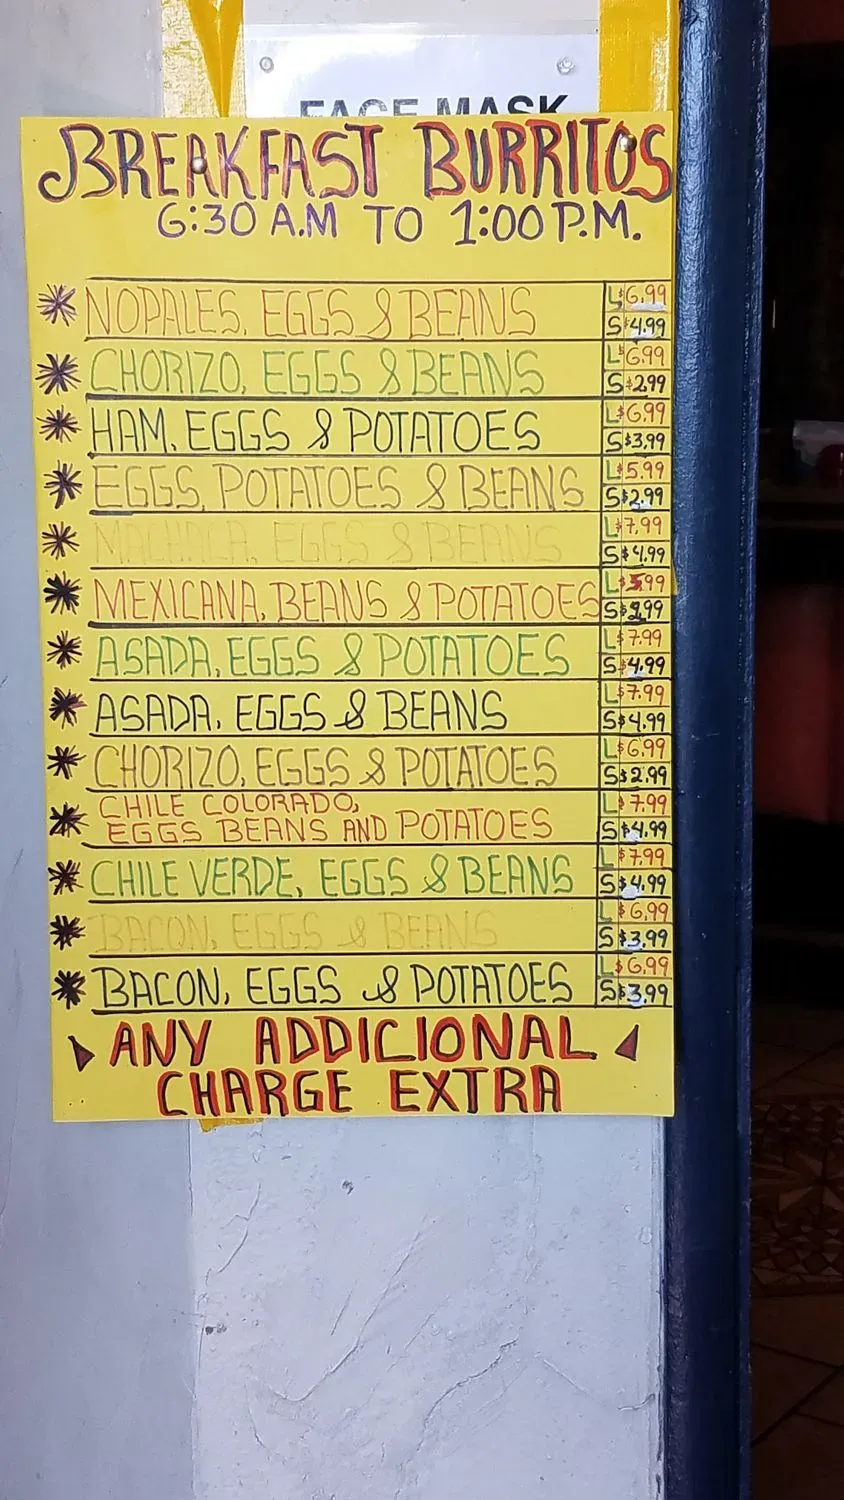 FACE MASK
BREAKFAST BURRITOS
6:30 A.M TO 1:00 P.M.
NOPALES, EGGS & BEANS L $6.99
S $4.99
CHORIZO, EGGS & BEANS L $6.99
S $2.99
HAM, EGGS & POTATOES L $6.99
S $3.99
EGGS, POTATOES & BEANS L $5.99
S $2.99
MACHACA, EGGS & BEANS L $7.99
S $4.99
MEXICANA, BEANS & POTATOES L $5.99
S $2.99
ASADA, EGGS & POTATOES L $7.99
S $4.99
ASADA, EGGS & BEANS L $7.99
S $4.99
CHORIZO, EGGS & POTATOES L $6.99
S $2.99
CHILE COLORADO, L $7.99
EGGS BEANS AND POTATOES S $4.99
CHILE VERDE, EGGS & BEANS L $7.99
S $4.99
BACON, EGGS & BEANS L $6.99
S $3.99
BACON, EGGS & POTATOES L $6.99
S $3.99
ANY ADDICIONAL
CHARGE EXTRA